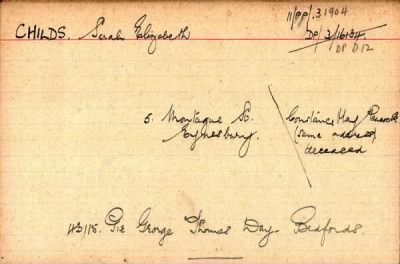 11/pp/.3 1904
CHILDS. Sarah Elizabeth
DP/3/16134
DP D12
5. Montague St.
Eynesbury.
Constance May
(same address)
deceased
43118. Pte George Thomas Day. Bedfords.